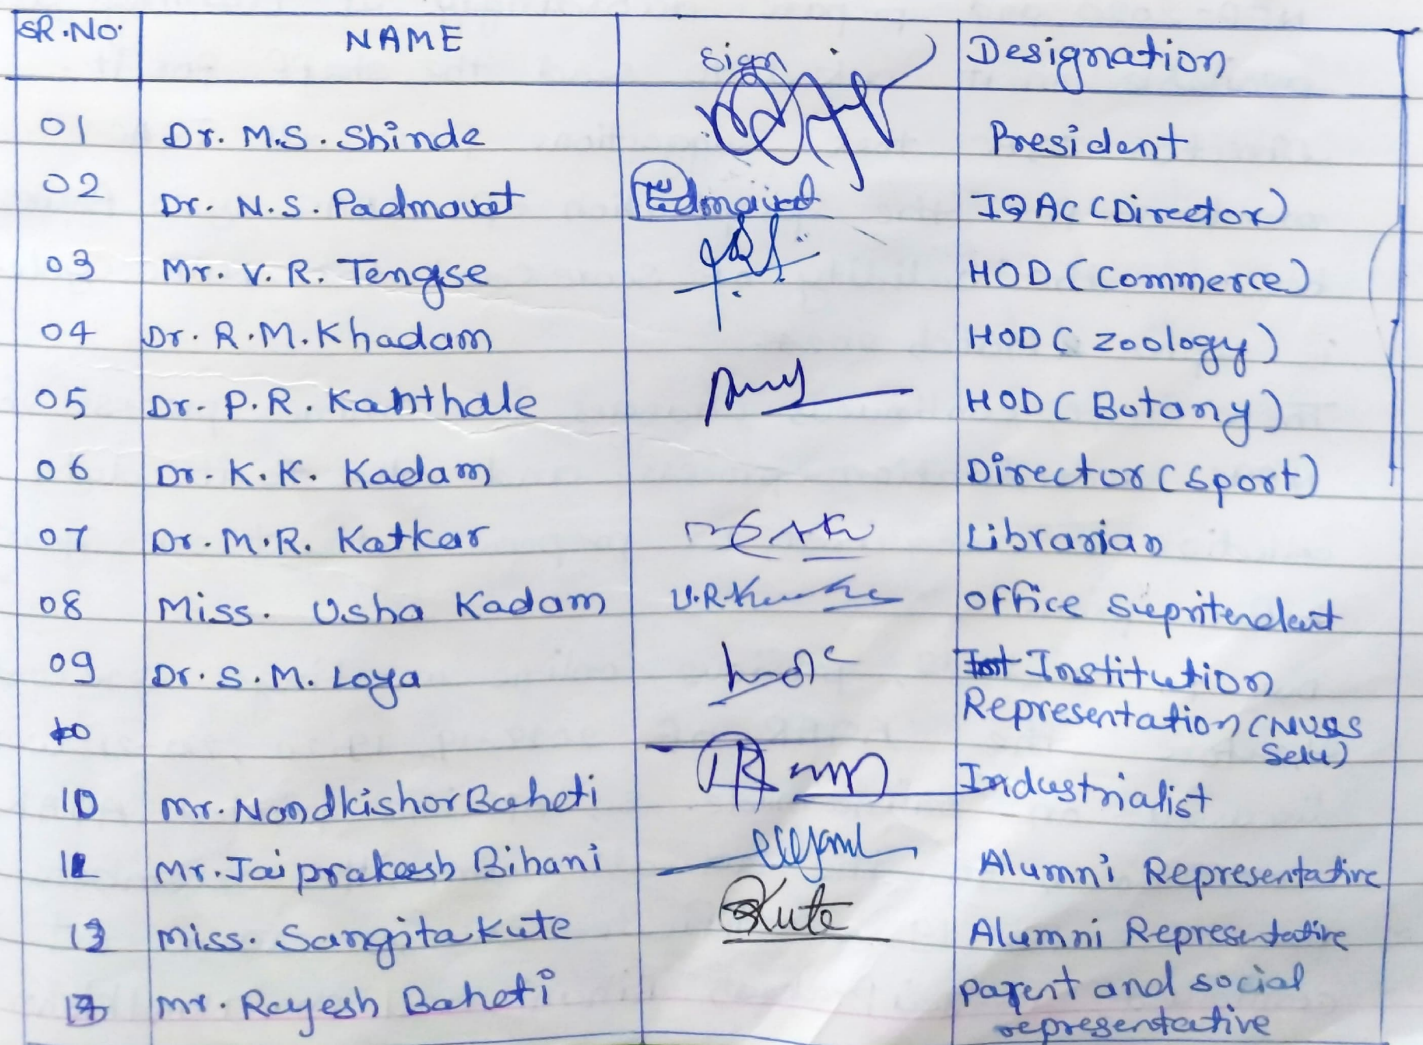 SR.No. NAME Sign Designation
01 Dr. M.S. Shinde President
02 Dr. N.S. Padmavat Padmavat IQAC (Director)
03 Mr. V. R. Tengse HOD (Commerce)
04 Dr. R.M. Khadam HOD (Zoology)
05 Dr. P.R. Kanthale HOD (Botany)
06 Dr. K.K. Kadam Director (Sport)
07 Dr. M.R. Katkar Librarian
08 Miss. Usha Kadam U.R. office Supritendent
09 Dr. S.M. Loya Institution
Representation (NVSS
Selu)
10 Mr. Nandkishor Baheti Industrialist
Mr. Jaiprakash Bihani Alumni Representative
Miss. Sangita Kute Kute Alumni Representative
Mr. Rayesh Baheti parent and social
representative